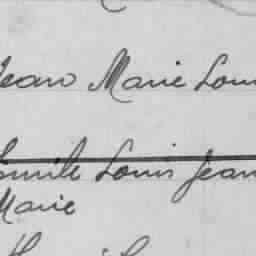 Jean Marie Loui
Emile Louis Jean
Marie